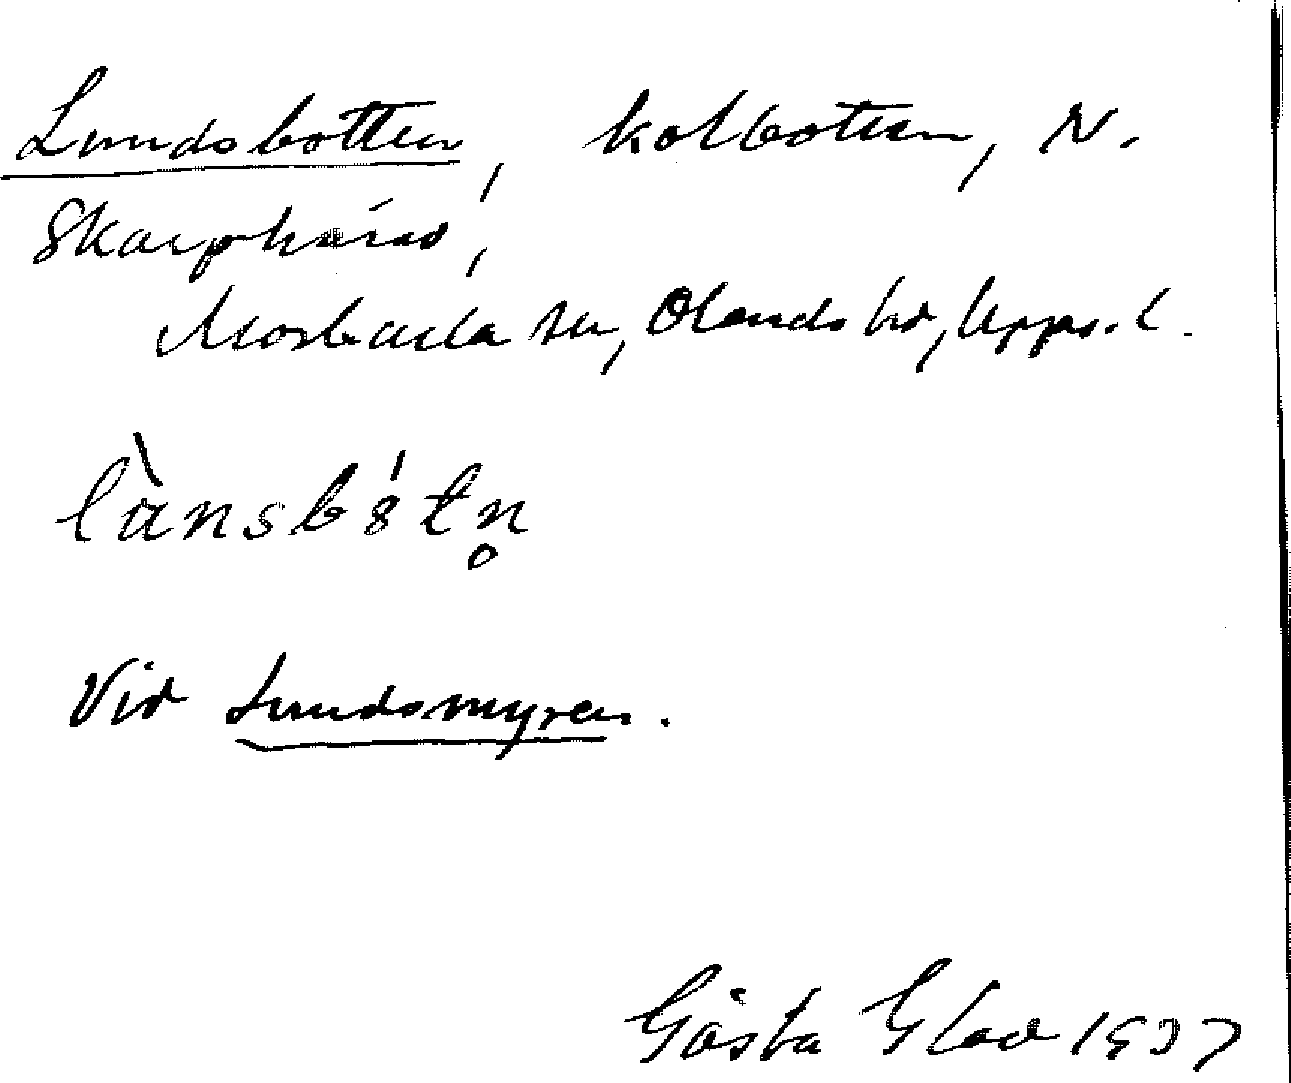 Lundsbotten, kolbotten, N.
Skarphård,
Morkarla sn, Olands hd, Upps. l.
lànsbótn̥
Vid Lundsmyren.
Gösta Glad 1937